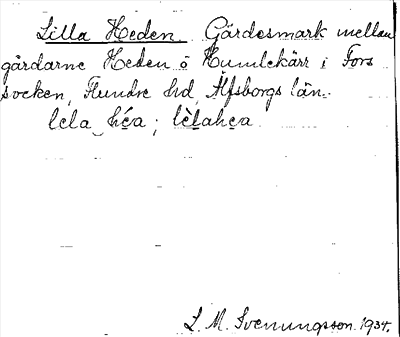 Lilla Heden. Gärdesmark mellan
gårdarne Heden o Humlekärr i Fors
socken, Flundre hd, Älfsborgs län.
lela héa; lèlahea
L. M. Svenungsson. 1934.